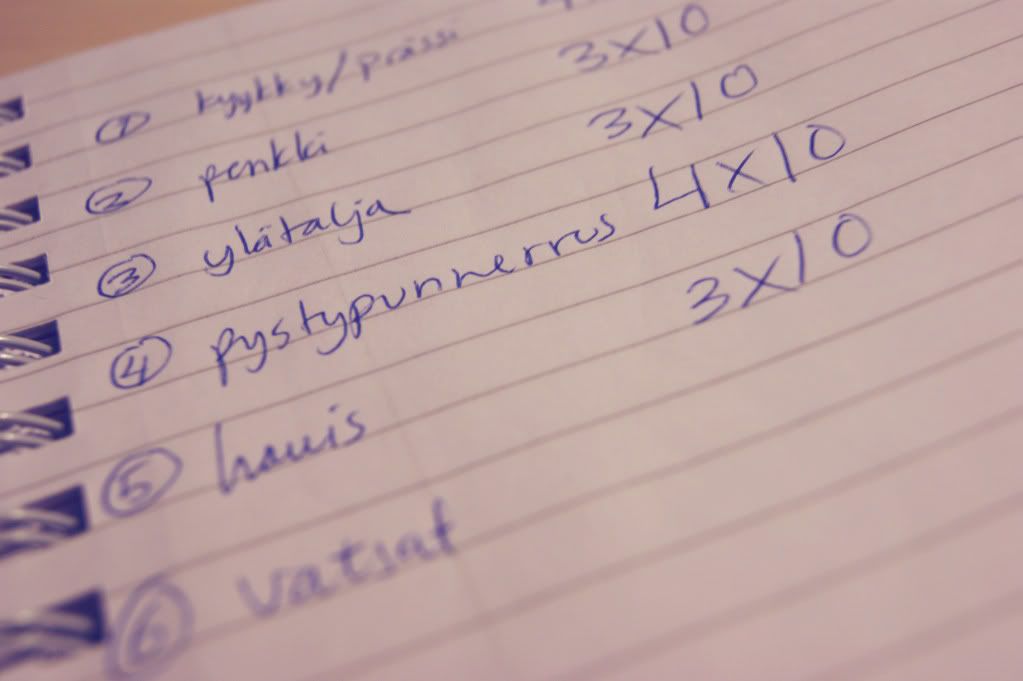 ① kyykky/prässi
② penkki 3x10
③ ylätalja 3x10
④ pystypunnerrus 4x10
⑤ hauis 3x10
⑥ vatsat